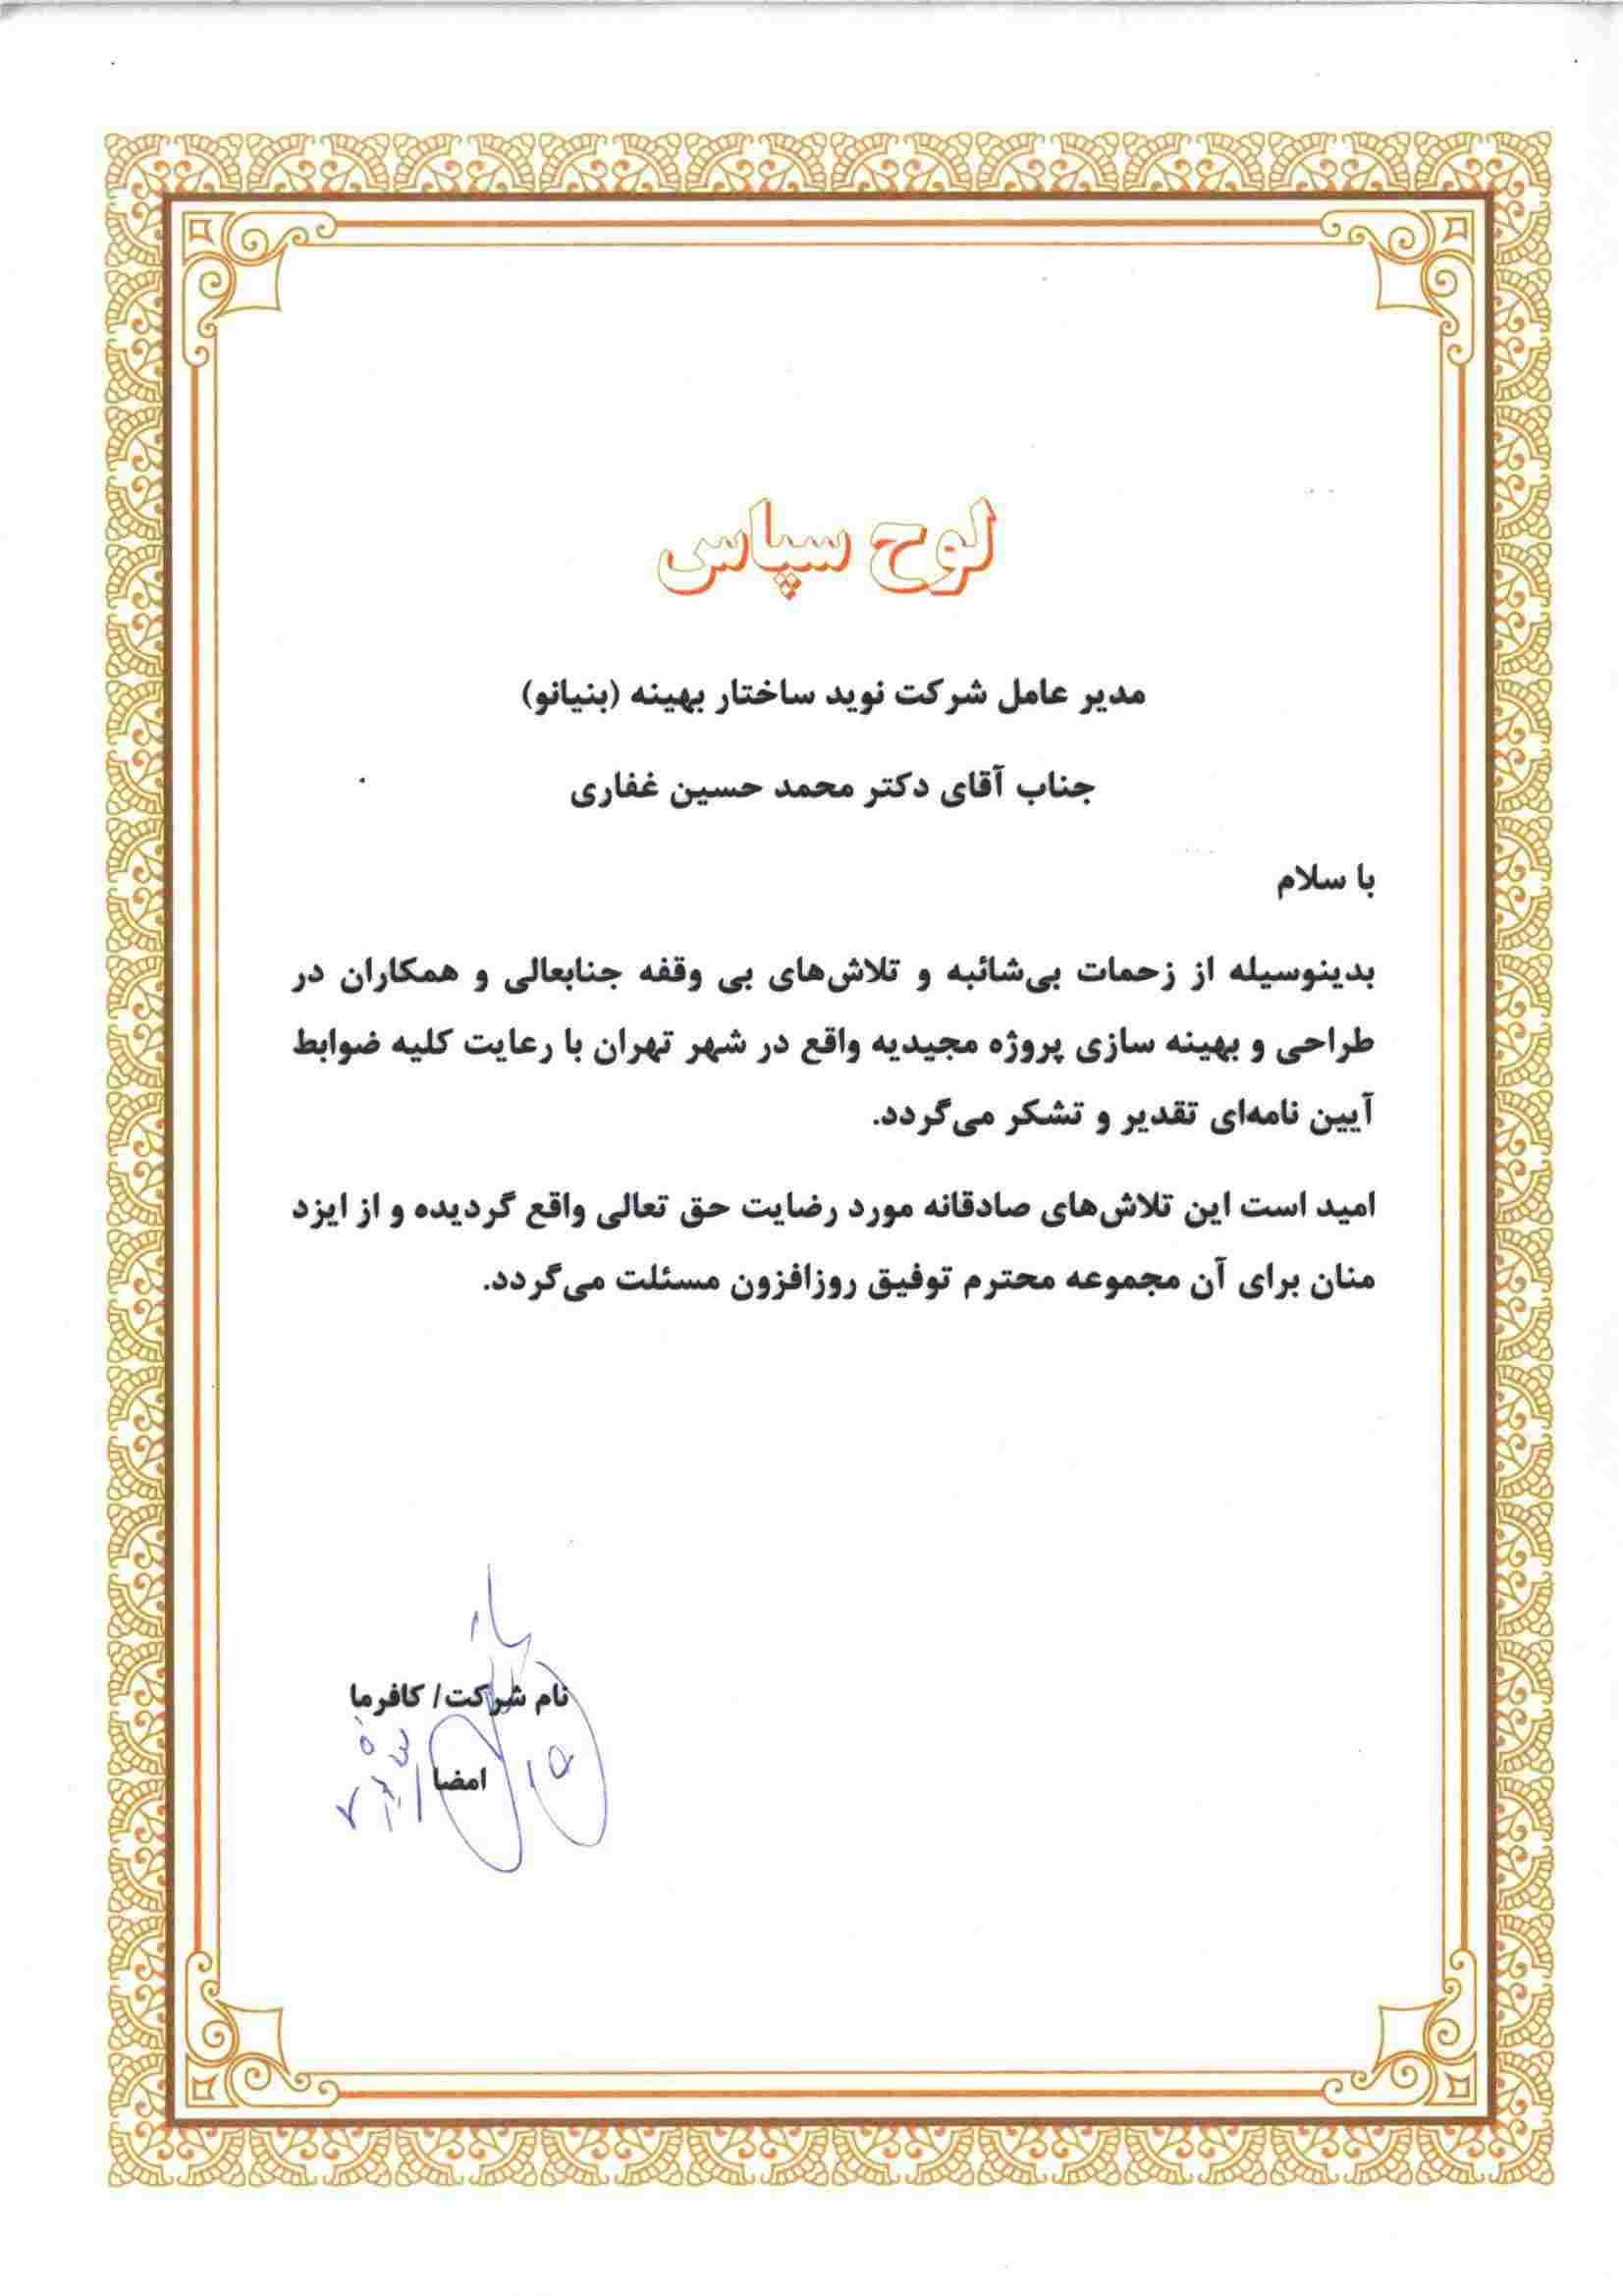 لوح سپاس
مدیر عامل شرکت نوید ساختار بهینه (بنیانو)
جناب آقای دکتر محمد حسین غفاری
با سلام
بدینوسیله از زحمات بی‌شائبه و تلاش‌های بی وقفه جنابعالی و همکاران در
طراحی و بهینه سازی پروژه مجیدیه واقع در شهر تهران با رعایت کلیه ضوابط
آیین نامه‌ای تقدیر و تشکر می‌گردد.
امید است این تلاش‌های صادقانه مورد رضایت حق تعالی واقع گردیده و از ایزد
منان برای آن مجموعه محترم توفیق روزافزون مسئلت می‌گردد.
نام شرکت/ کافرما
امضا